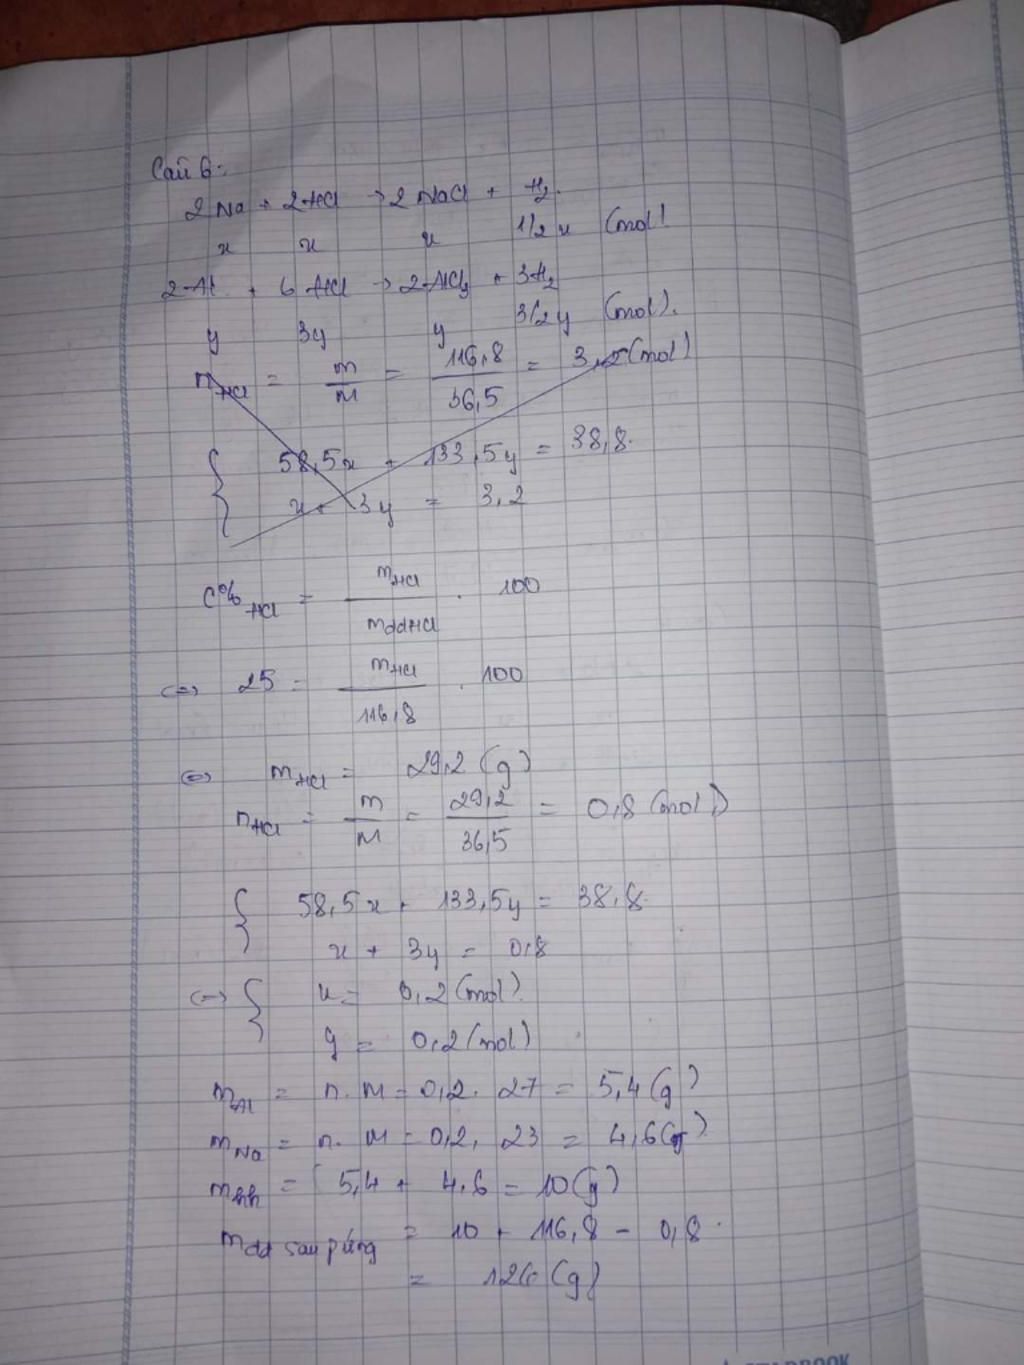 Câu 6:
2Na + 2HCl → 2NaCl + H2.
x x x 1/2x (mol)
2Al + 6HCl → 2AlCl3 + 3H2
y 3y y 3/2y (mol).
nHCl = m/M = 116,8/36,5 = 3,2 (mol)
{ 58,5x + 133,5y = 38,8.
x + 3y = 3,2
C%HCl = mHCl/mddHCl . 100
(=) 25 = mHCl/116,8 . 100
(=) mHCl = 29,2 (g)
nHCl = m/M = 29,2/36,5 = 0,8 (mol)
{ 58,5x + 133,5y = 38,8.
x + 3y = 0,8
(=) { x = 0,2 (mol).
y = 0,2 (mol)
mAl = n.M = 0,2. 27 = 5,4 (g)
mNa = n. M = 0,2. 23 = 4,6 (g).
mhh = 5,4 + 4,6 = 10 (g)
mdd sau pứng = 10 + 116,8 - 0,8.
= 126 (g)